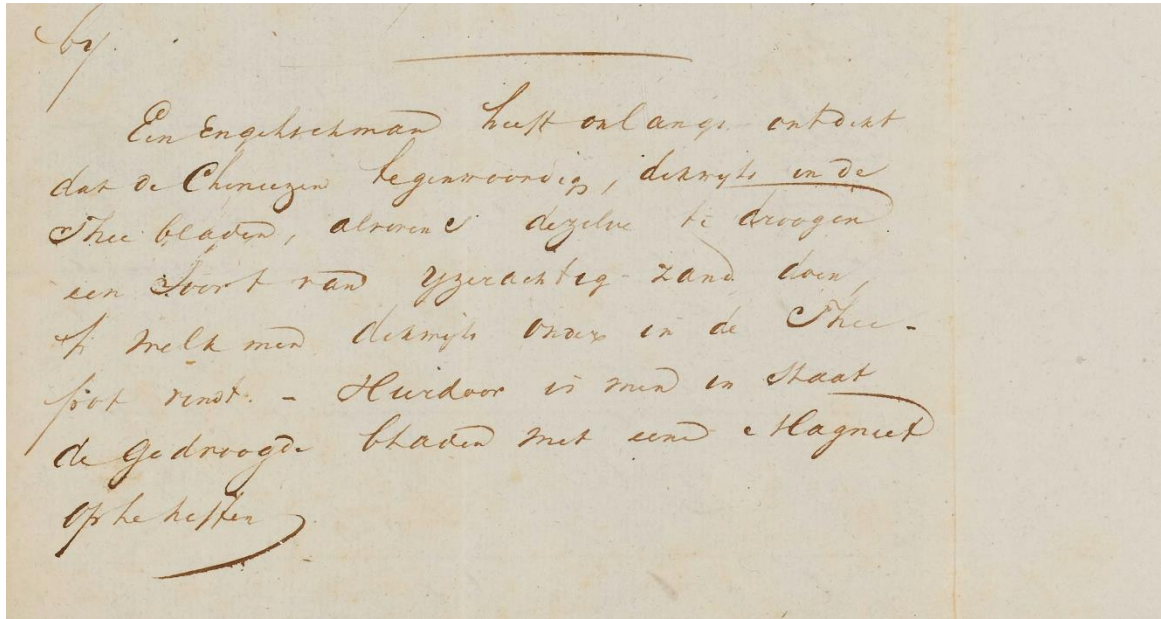 by.
Een Engelschman heeft onlangs ontdekt
dat de Chineezen tegenwoordig, dikwyls in de
Thee bladen, alvorens dezelve te droogen
een Soort van yzerachtig zand doen,
't welk men dikwyls onder in de Thee-
pot vindt. - Hierdoor is men in Staat
de gedroogde bladen met eene Magneet
op te heffen